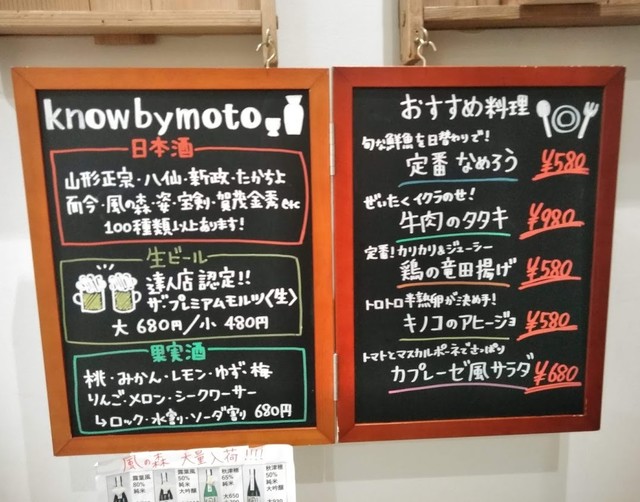 knowbymoto
日本酒
山形正宗・八仙・新政・たかちよ
而今・風の森・姿・宝剣・賀茂金秀etc
100種類以上あります!
生ビール
達人店認定!!
ザ・プレミアムモルツ〈生〉
大 680円/小 480円
果実酒
桃・みかん・レモン・ゆず・梅
りんご・メロン・シークワーサー
↳ロック・水割・ソーダ割 680円
おすすめ料理
旬な鮮魚を日替わりで!
定番 なめろう ¥580
ぜいたくイクラのせ!
牛肉のタタキ ¥980
定番!カリカリ&ジューシー
鶏の竜田揚げ ¥580
トロトロ半熟卵が決め手!
キノコのアヒージョ ¥580
トマトとマスカルポーネでさっぱり
カプレーゼ風サラダ ¥680
風の森 大量入荷!!!!
露葉風 80% 純米
露葉風 50% 純米 大吟醸
秋津穂 65% 純米
秋津穂 50% 純米 大吟醸